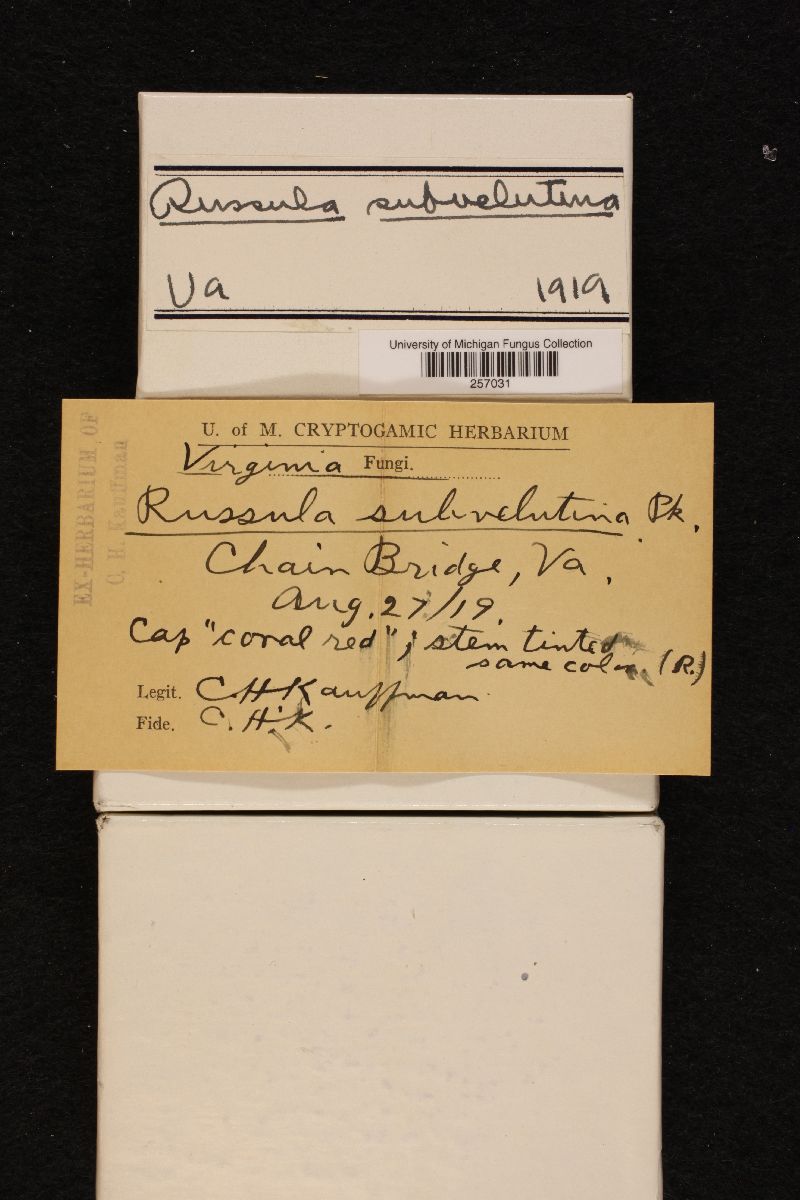 Russula subvelutina
Va 1919
University of Michigan Fungus Collection
257031
EX-HERBARIUM OF
C. H. Kauffman
U. of M. CRYPTOGAMIC HERBARIUM
Virginia Fungi.
Russula subvelutina Pk.
Chain Bridge, Va.
Aug. 27/19.
Cap "coral red"; stem tinted
same color (R.)
Legit. CHKauffman
Fide. C.H.K.